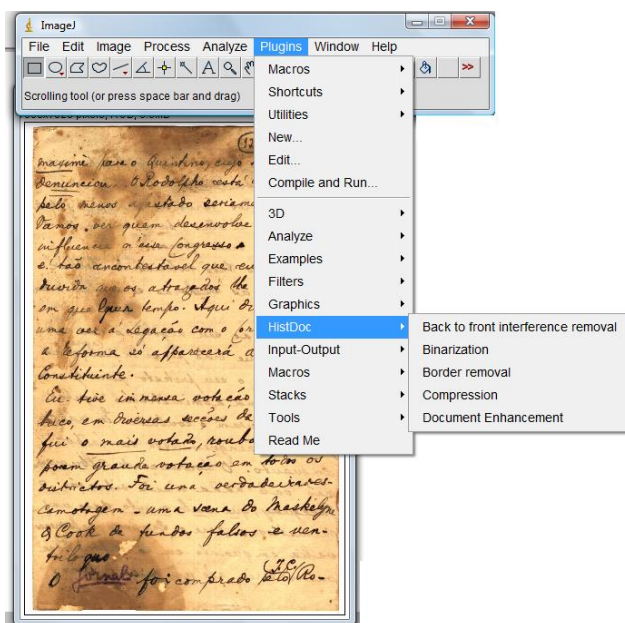 ImageJ
File Edit Image Process Analyze Plugins Window Help
Scrolling tool (or press space bar and drag)
Macros
Shortcuts
Utilities
New...
Edit...
Compile and Run...
3D
Analyze
Examples
Filters
Graphics
HistDoc
Input-Output
Macros
Stacks
Tools
Read Me
Back to front interference removal
Binarization
Border removal
Compression
Document Enhancement
maxime para o Quintino, cujo
denunciou. O Rodolpho está
pelo menos apastado seriame
Vamos ver quem desenvolve
influencia n'esse Congresso
e tão incontestavel que
duvida que os atrazados
em que tempo. Aqui
uma vez a legação com o
a Reforma só apparecerá
Constituinte.
Eu tive immensa votação
em diversas secções da
fui o mais votado, roub
poem grande votação em todos os
districtos. Foi uma verdadeira es-
camotagem - uma scena do Maskelyne
& Cook de fundos falsos e ven-
triloquo.
O Jornal foi comprado pelo Ro-